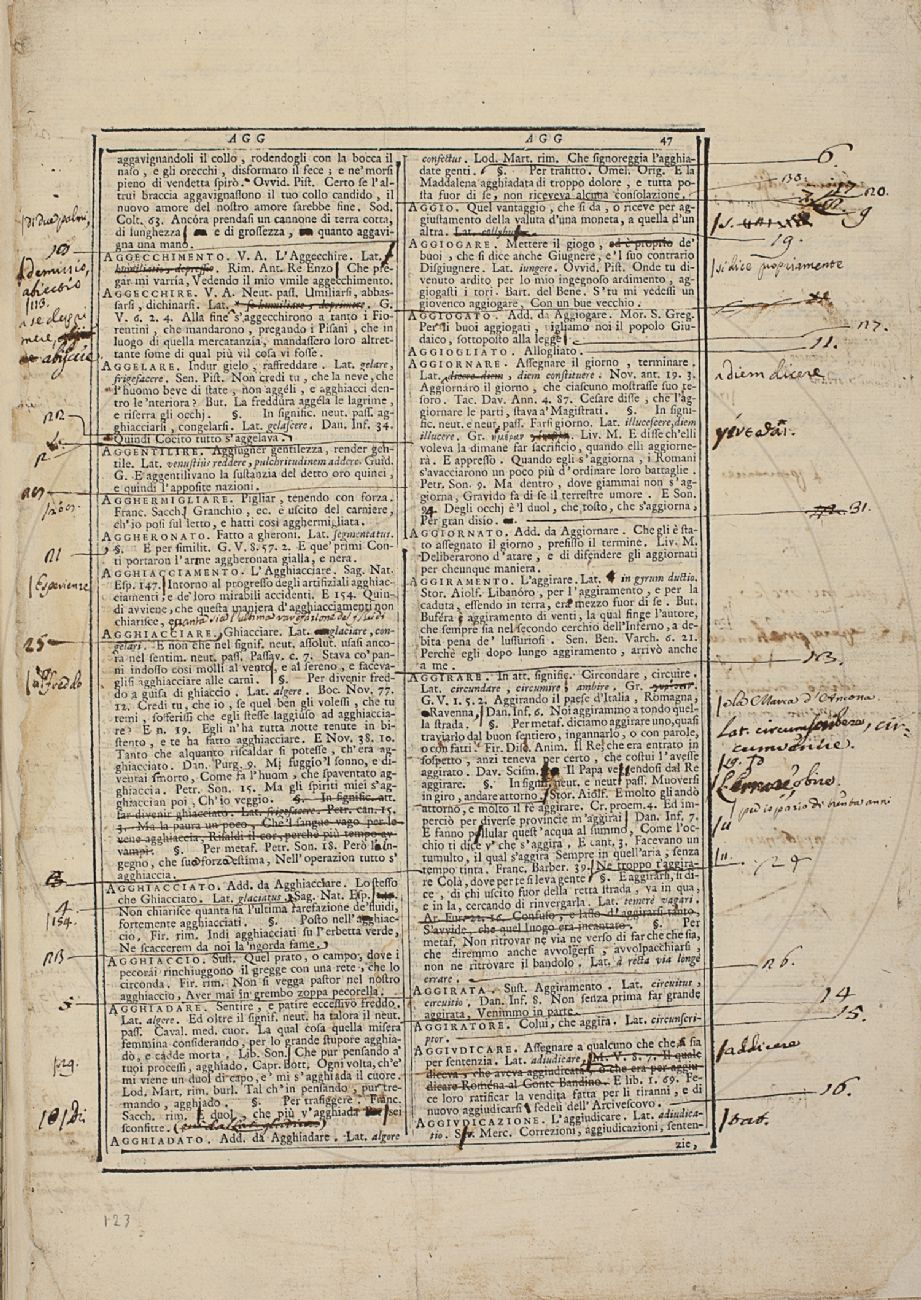 AGG
AGG 47
aggavignandoli il collo, rodendogli con la bocca il
naso, e gli orecchi, disformato il fece; e ne' morsi
pieno di vendetta spirò. Ovvid. Pist. Certo se l'al-
trui braccia aggavignassono il tuo collo candido, il
nuovo amore del nostro amore sarebbe fine. Sod.
Colt. 63. Ancora prendasi un cannone di terra cotta,
di lunghezza e di grossezza, quanto aggavi-
gna una mano.
AGGECCHIMENTO. V. A. L'Aggecchire. Lat.
humiliatio, depressio. Rim. Ant. Re Enzo Che pre-
gar mi varria, Vedendo il mio vmile aggecchimento.
AGGECCHIRE. V. A. Neut. pass. Umiliarsi, abbas-
sarsi, dichinarsi. Lat. se humiliare, deprimere. G.
V. 6. 2. 4. Alla fine s'aggecchirono a tanto i Fio-
rentini, che mandarono, pregando i Pisani, che in
luogo di quella mercatanzia, mandassero loro altret-
tante some di qual più vil cosa vi fosse.
AGGELARE. Indur gielo, raffreddare. Lat. gelare,
frigefacere. Sen. Pist. Non credi tu, che la neve, che
l'huomo beve di state, non aggéli, e agghiacci den-
tro le 'nteriora? But. La freddura aggéla le lagrime,
e riserra gli occhj. §. In signific. neut. pass. ag-
ghiacciarsi, congelarsi. Lat. gelascere. Dan. Inf. 34.
Quindi Cocito tutto s'aggelava.
AGGENTILIRE. Aggiugner gentilezza, render gen-
tile. Lat. venustius reddere, pulchritudinem addere. Guid.
G. E aggentilivano la sustanzia del detto oro quinci,
e quindi l'apposite nazioni.
AGGHERMIGLIARE. Pigliar, tenendo con forza.
Franc. Sacch. Granchio, ec. è uscito del carniere,
ch'io posi sul letto, e hatti così agghermigliata.
AGGHERONATO. Fatto a gheroni. Lat. segmentatus.
§. E per similit. G. V. 8. 57. 2. E que' primi Con-
ti portaron l'arme aggheronata gialla, e nera.
AGGHIACCIAMENTO. L'Agghiacciare. Sag. Nat.
Esp. 147. Intorno al progresso degli artifiziali agghiac-
ciamenti, e de' loro mirabili accidenti. E 154. Quin-
di avviene, che questa maniera d'agghiacciamenti non
chiarisce, quanta sia l'ultima rarefazione de' fluidi
AGGHIACCIARE. Ghiacciare. Lat. conglaciare, con-
gelari. E non che nel signif. neut. assolut. usasi anco-
ra nel sentim. neut. pass. Passav. c. 7. Stava co' pan-
ni indosso così molli al vento, e al sereno, e faceva-
glisi agghiacciare alle carni. §. Per divenir fred-
do a guisa di ghiaccio. Lat. algere. Boc. Nov. 77.
12. Credi tu, che io, se quel ben gli volessi, che tu
temi, sofferissi che egli stesse laggiuso ad agghiaccia-
re? E n. 19. Egli n'ha tutta notte tenute in bi-
stento, e te ha fatto agghiacciare. E Nov. 38. 10.
Tanto che alquanto riscaldar si potesse, ch'era ag-
ghiacciato. Dan. Purg. 9. Mi fuggìo 'l sonno, e di-
ventai smorto, Come fa l'huom, che spaventato ag-
ghiaccia. Petr. Son. 15. Ma gli spiriti miei s'ag-
ghiaccian poi, Ch'io veggio. §. In signific. att.
far divenir ghiacciato. Lat. frigefacere. Petr. can. 15.
3. Ma la paura un poco, Che 'l sangue vago per le
vene agghiaccia, Risalda il cor, perchè più tempo av-
vampi. §. Per metaf. Petr. Son. 18. Però l'in-
gegno, che sua forza estima, Nell'operazion tutto s'
agghiaccia.
AGGHIACCIATO. Add. da Agghiacciare. Lo stesso
che Ghiacciato. Lat. glaciatus. Sag. Nat. Esp.
Non chiarisce quanta sia l'ultima rarefazione de' fluidi,
fortemente agghiacciati. §. Posto nell'agghiac-
cio. Fir. rim. Indi agghiacciati su l'erbetta verde,
Ne scaccerem da noi la 'ngorda fame.
AGGHIACCIO. Sust. Quel prato, o campo, dove i
pecorai rinchiuggono il gregge con una rete, che lo
circonda. Fir. rim. Non si vegga pastor nel nostro
agghiaccio, Aver mai in grembo zoppa pecorella.
AGGHIADARE. Sentire, e patire eccessivo freddo.
Lat. algere. Ed oltre il signif. neut. ha talora il neut.
pass. Caval. med. cuor. La qual cosa quella misera
femmina considerando, per lo grande stupore agghia-
dò, e cadde morta. Lib. Son. Che pur pensando a'
tuoi processi, agghiado. Capr. Bott. Ogni volta, ch'e'
mi viene un duol di capo, e' mi s'agghiada il cuore.
Lod. Mart. rim. burl. Tal ch'in pensando, pur tre-
mando, agghiado. §. Per trafiggere. Franc.
Sacch. rim. E duol, che più v'agghiada sei
sconfitte.
AGGHIADATO. Add. da Agghiadare. Lat. algore
confectus. Lod. Mart. rim. Che signoreggia l'agghia-
date genti. §. Per trafitto. Omel. Orig. E la
Maddalena agghiadata di troppo dolore, e tutta po-
sta fuor di se, non riceveva alcuna consolazione.
AGGIO. Quel vantaggio, che si dà, o riceve per ag-
giustamento della valuta d'una moneta, a quella d'un
altra. Lat. collybus.
AGGIOGARE. Mettere il giogo, ed è proprio de'
buoi, che si dice anche Giugnere, e 'l suo contrario
Disgiugnere. Lat. iungere. Ovvid. Pist. Onde tu di-
venuto ardito per lo mio ingegnoso ardimento, ag-
giogasti i tori. Bart. del Bene. S'tu mi vedessi un
giovenco aggiogare, Con un bue vecchio.
AGGIOGATO. Add. da Aggiogare. Mor. S. Greg.
Per li buoi aggiogati, pigliamo noi il popolo Giu-
daico, sottoposto alla legge
AGGIOGLIATO. Allogliato.
AGGIORNARE. Assegnare il giorno, terminare.
Lat. dicere diem, diem constituere. Nov. ant. 19. 3.
Aggiornaro il giorno, che ciascuno mostrasse suo te-
soro. Tac. Dav. Ann. 4. 87. Cesare disse, che l'ag-
giornare le parti, stava a' Magistrati. §. In signi-
fic. neut. e neut. pass. Farsi giorno. Lat. illucescere, diem
illucere. Gr. Liv. M. E disse ch'elli
voleva la dimane far sacrificio, quando elli aggiorne-
rà. E appresso. Quando egli s'aggiorna, i Romani
s'avacciarono un poco più d'ordinare loro battaglie.
Petr. Son. 9. Ma dentro, dove giammai non s'ag-
giorna, Gravido fa di se il terrestre umore. E Son.
Degli occhj è 'l duol, che, tosto, che s'aggiorna,
Per gran disio.
AGGIORNATO. Add. da Aggiornare. Che gli è sta-
to assegnato il giorno, prefisso il termine. Liv. M.
Deliberarono d'atare, e di difendere gli aggiornati
per cheunque maniera.
AGGIRAMENTO. L'aggirare. Lat. in gyrum ductio.
Stor. Aiolf. Libanóro, per l'aggiramento, e per la
caduta, essendo in terra, era mezzo fuor di se. But.
Bufera è aggiramento di venti, la qual finge l'autore,
che sempre sia nel secondo cerchio dell'Inferno, a de-
bita pena de' lussuriosi. Sen. Ben. Varch. 6. 21.
Perchè egli dopo lungo aggiramento, arrivò anche
a me.
AGGIRARE. In att. signific. Circondare, circuire.
Lat. circundare, circumire, ambire. Gr.
G. V. 1. 5. 2. Aggirando il paese d'Italia, Romagna,
Ravenna, Dan. Inf. 6. Noi aggirammo a tondo quel-
la strada. §. Per metaf. diciamo aggirare uno, quasi
traviarlo dal buon sentiero, ingannarlo, o con parole,
o con fatti. Fir. Disc. Anim. Il Re, che era entrato in
sospetto, anzi teneva per certo, che costui l'avesse
aggirare. Dav. Scism. Il Papa vedendosi dal Re
aggirare. §. In signif. neut. e neut. pass. Muoversi
in giro, andare attorno. Stor. Aiolf. E molto gli andò
attorno, e molto il fe aggirare. Cr. proem. 4. Ed im-
perciò per diverse provincie m'aggirai. Dan. Inf. 7.
E fanno pullular quest'acqua al summo, Come l'oc-
chio ti dice v' che s'aggira. E cant. 3. Facevano un
tumulto, il qual s'aggira Sempre in quell'aria, senza
tempo tinta. Franc. Barber. 39. Ne troppo t'aggira-
re Colà, dove per te si leva gente. §. E aggirarsi, si di-
ce, di chi uscito fuor della retta strada, va in qua,
e in là, cercando di rinvergarla. Lat. temerè vagari.
Ar. Fur. 22. 16. Confuso, e lasso d'aggirarsi tanto,
S'avvide, che quel luogo era incantato. §. Per
metaf. Non ritrovar nè via ne verso di far che che sia,
che diremmo anche avvolgersi, avvolpacchiarsi,
non ne ritrovare il bandolo. Lat. à recta via longè
errare.
AGGIRATA. Sust. Aggiramento. Lat. circuitus,
circuitio. Dan. Inf. 8. Non senza prima far grande
aggirata, Venimmo in parte.
AGGIRATORE. Colui, che aggira. Lat. circumscri-
ptor.
AGGIVDICARE. Assegnare a qualcuno che che sia
per sentenzia. Lat. adiudicare. M. V. 8. 7. Il quale
diceva, che aveva aggiudicata, o che era per aggiu-
dicare Romena al Conte Bandino. E lib. 1. 69. Fe-
ce loro ratificar la vendita fatta per li tiranni, e di
nuovo aggiudicarsi sedeli dell'Arcivescovo.
AGGIVDICAZIONE. L'aggiudicare. Lat. adiudica-
tio. Merc. Correzioni, aggiudicazioni, senten-
zie,
di due palmi,
demissio,
abiectio
113.
se depri
mere,
abiicere
Esperienze
25
freddo
4
154.
5
129.
6.
120.
9
19.
si dice propriamente
127.
11.
diem dicere
31.
13.
Lat. circumducere, cir-
cumvenire.
più spazio di trenta anni
124
126.
14
15.
addicere
16.
123